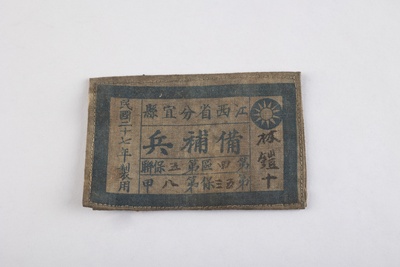 林鎧十
江西省分宜縣
備補兵
第四區第五保聯
第五三保第八甲
民國二十七年製用